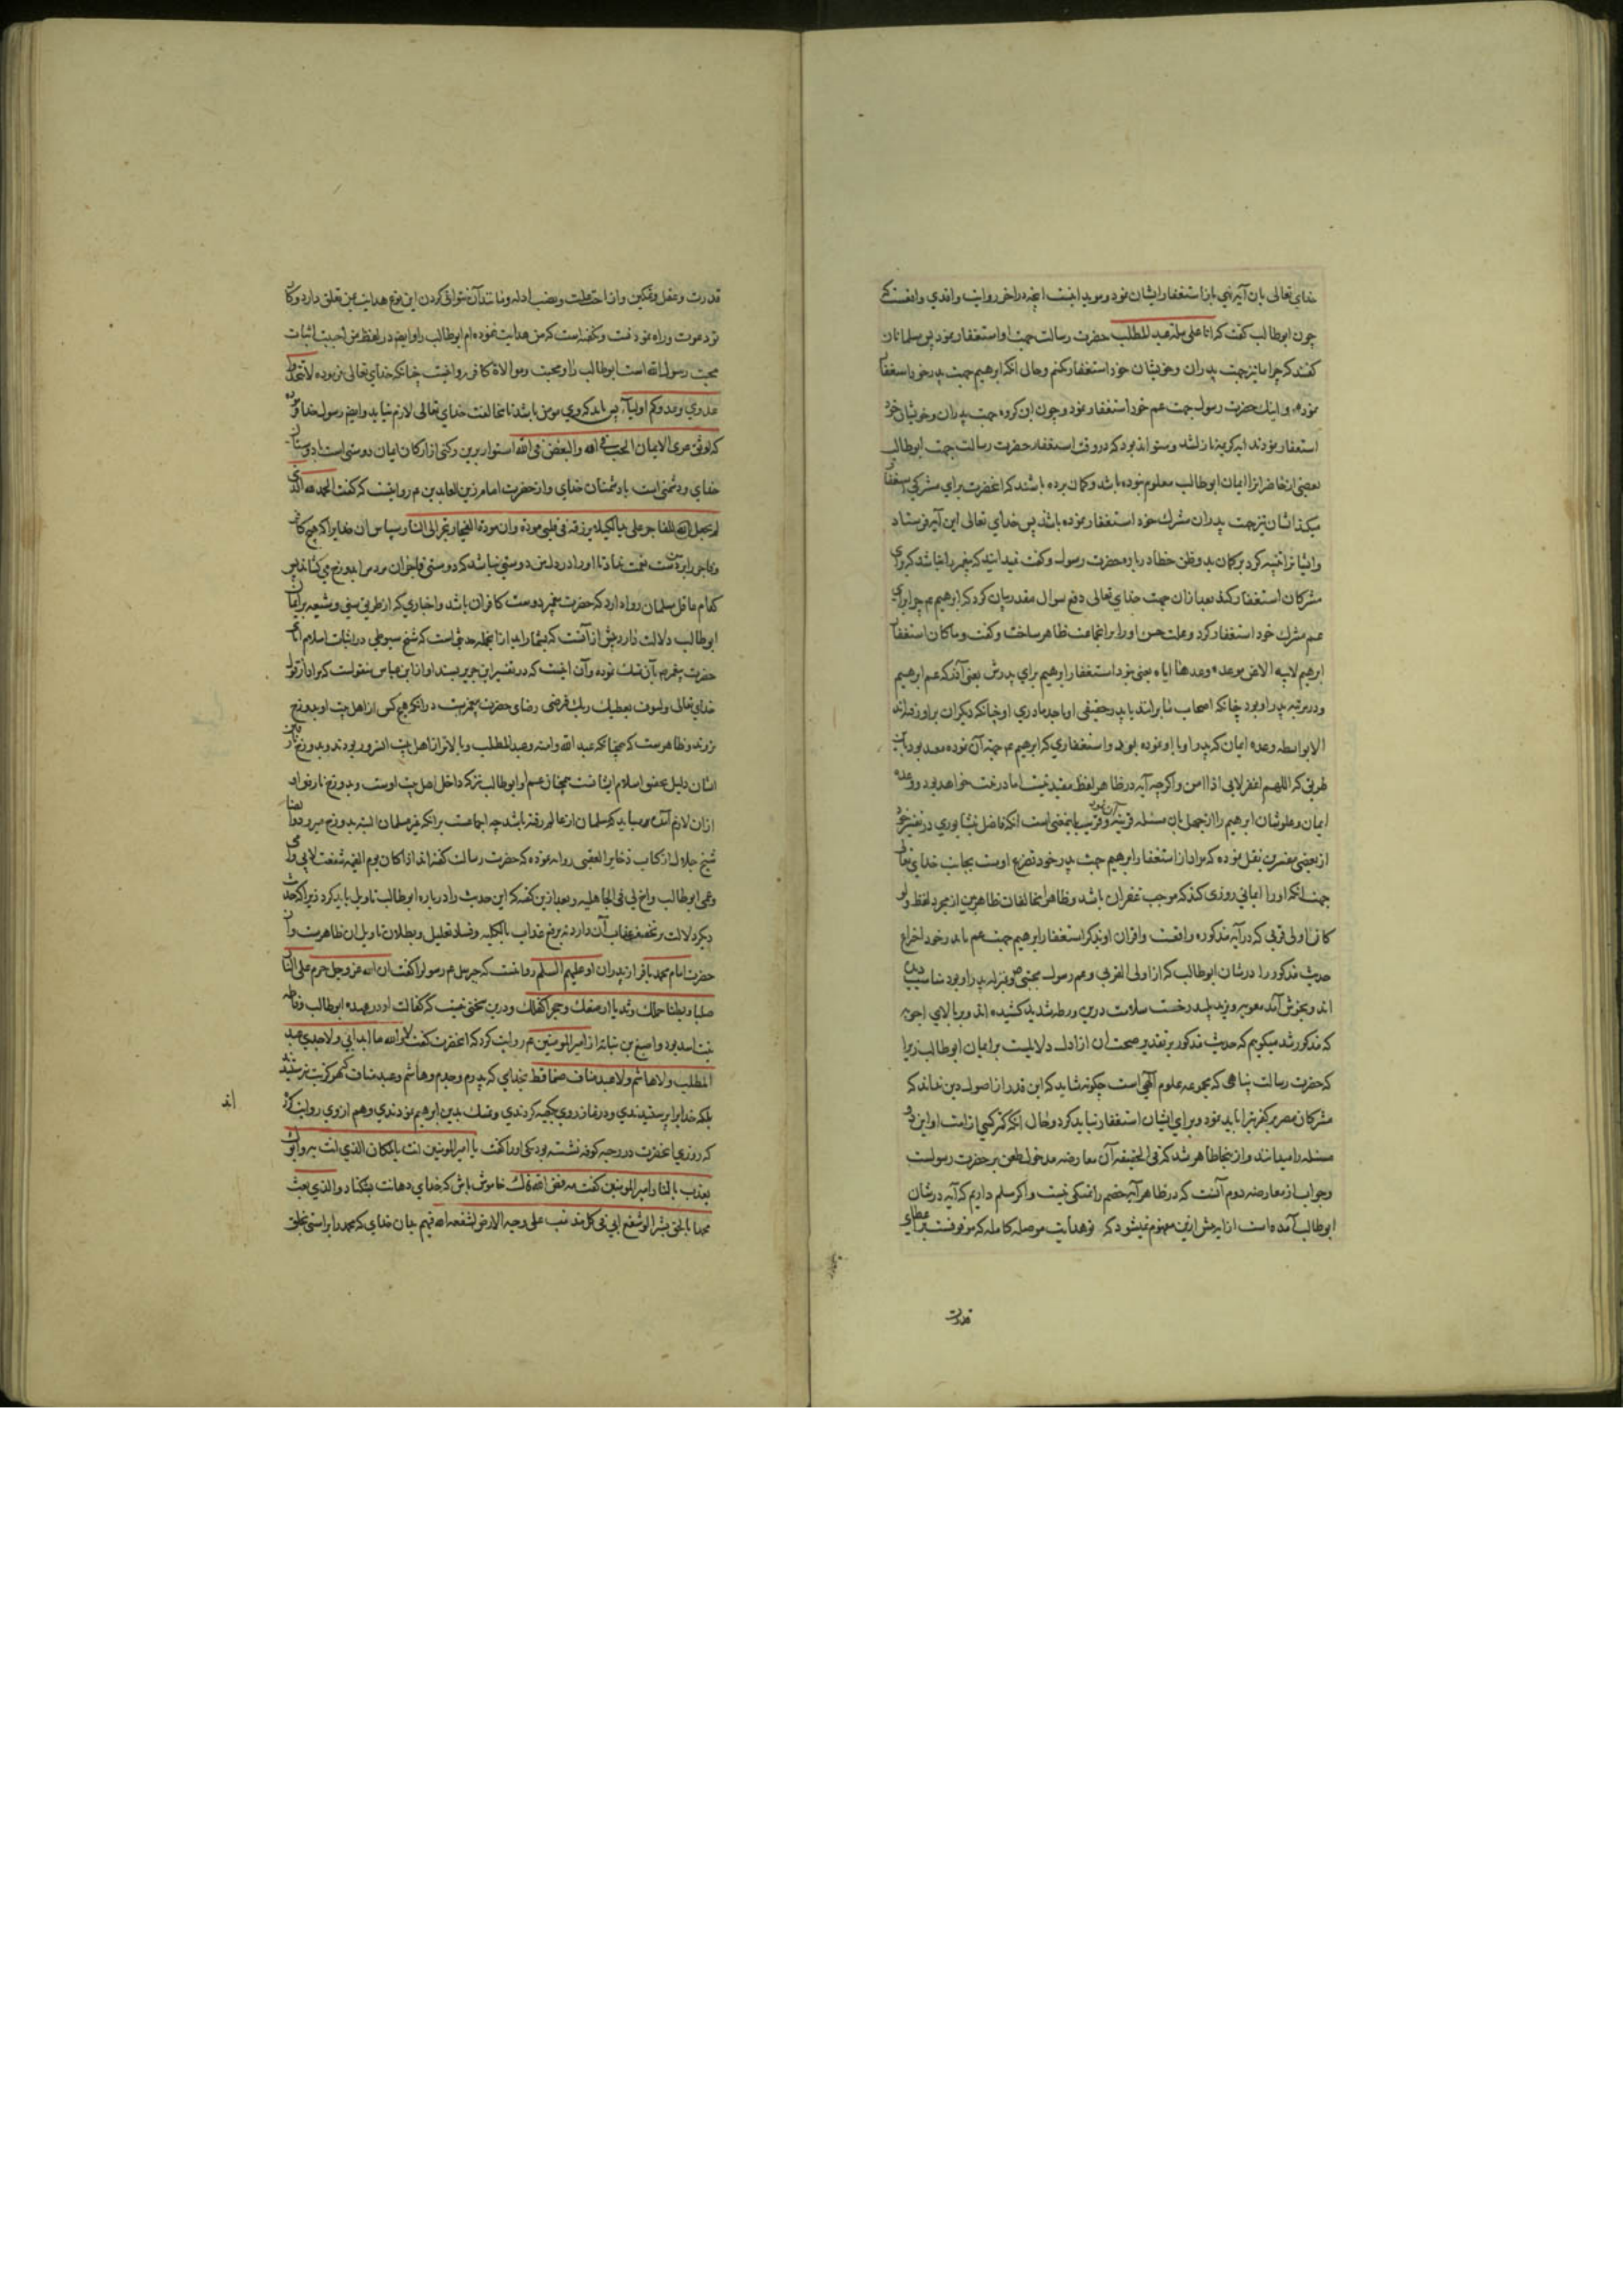 خدای تعالی بان آیه نهی باز استغفار ایشان نمود و موید اینست انچه در اخر روایت واقدی واقعست که
چون ابوطالب گفت که انا علی ملة عبد المطلب حضرت رسالت جهت او استغفار نمود پس مسلمانان
گفتند که چرا ما نیز جهت پدران و خویشان خود استغفار نکنیم و حال انکه ابرهیم جهت پدر خود استغفار
نموده و اینک حضرت رسول جهت عم خود استغفار نمود و چون این گروه جهت پدران و خویشان خود
استغفار نمودند ایه کریمه نازل شد و میتواند بود که در وقت استغفار حضرت رسالت جهت ابوطالب
بعضی از حاضرانرا ایمان ابوطالب معلوم نبوده باشد و کمان برده باشند که انحضرت برای مشرکی استغفار
میکند ایشان نیز جهت پدران مشرک خود استغفار نموده باشند پس خدای تعالی این آیه فرستاد
و ایشانرا تنبیه کرد بر کمان بد و ظن خطا درباره حضرت رسول و گفت نمیدانید که پیغمبر را نباشد که برای
مشرکان استغفار کند بعد ازان جهت خدای تعالی دفع سوال مقدر بیان کرد که ابرهیم عم چرا برای
عم مشرک خود استغفار کرد و علت حسن او را بر انجماعت ظاهر ساخت و گفت و ما کان استغفار
ابرهیم لابیه الا عن موعدة وعدها ایاه یعنی نبود استغفار ابرهیم برای پدرش یعنی آذر که عم ابرهیم
و در مرتبه پدر او بود چنانکه اصحاب ما برانند یا پدر حقیقی او یا جد مادری او چنانکه دیکران بر او رفته‌اند
الا بواسطه وعده ایمان که پدر او با او نموده بود و استغفاری که ابرهیم عم جهة آن نموده مقید بود باین
طریق که اللهم اغفر لابی اذا امن و اکرچه آیه در ظاهر لفظ مقید نیست اما در نیت خواهد بود و وعده
ایمان و علو شان ابرهیم را از جهل باین مسئله قرینه آن بود و قریب باینمعنی است انکه فاضل نیشابوری در تفسیر خود
از بعضی مفسرین نقل نموده که مراد از استغفار ابرهیم جهت پدر خود تضرع اوست بجانب خدای تعالی
جهت انکه او را ایمانی روزی کند که موجب غفران باشد و ظاهرا مخالفان ظاهربین از مجرد لفظ ولو
کانوا اولی قربی که در آیه مذکوره واقعست و اقران او بذکر استغفار ابرهیم جهت عم یا پدر خود اختراع
حدیث مذکور را در شان ابوطالب که از اولی القربی و عم رسول مجتبی و بمنزله پدر او بود مناسب دیده
اند و بخوش آمد معویه و یزید پلید رخت سلامت درین ورطه شدید کشیده اند و بر بالای اجوبه
که مذکور شد میکویم که حدیث مذکور بر تقدیر صحت ان از ادله دلالیست بر ایمان ابوطالب زیرا
که حضرت رسالت پناهی که مجموعه علوم الهی است چکونه شاید که این قدر از اصول دین نداند که
مشرکان مصر بر کفر تبرا باید نمود و برای ایشان استغفار نباید کرد و حال انکه کمتر کسی از امت او این
مسئله را میدانند و از ینجا ظاهر شد که فی الحقیقه آن معارضه مدخول طعن بر حضرت رسولست
و جواب از معارضه دوم آنست که در ظاهر آیه خصم را تمسکی نیست و اکر مسلم داریم که آیه در شان
ابوطالب آمده است از ایه بیش ازین مفهوم نمیشود که تو هدایت موصله کامله که موقوفست بر اعطای
قدرت
قدرت و عقل و تمکین و ازاحت علت و نصب ادله و مانند آن نتوانی کردن این نوع هدایت بمن تعلق دارد و کار
تو دعوت و راه نمودنست و نکفته است که من هدایت ننموده ام ابوطالب را و ایضا در لفظ من احببت اثبات
محبت رسول الله است ابوطالب را و محبت و موالاة کافر روا نیست چنانکه خدای تعالی فرموده لا تتخذوا
عدوی و عدوکم اولیاء پس باید که وی مومن باشد تا مخالفت خدای تعالی لازم نیاید و ایضا رسول خدا فرموده
که اوثق عری الایمان الحب فی الله و البغض فی الله استوارترین رکنی از ارکان ایمان دوستی است با دوستان
خدای و دشمنی است با دشمنان خدای و از حضرت امام زین العابدین م روایتست که گفت الحمد لله الذی
لم یجعل للفاجر علی ید الکلیه برزقه فی قلبی مودة و ان مودة الفجار تجر الی النار و سپاس ان خدایرا که هیچ کافر
و فاجر را بر من دست نعمت ننهاد تا او را در دل من دوستی نباشد که دوستی فاجران مردم را بدوزخ می‌کشاند پس
کدام عاقل مسلمان روا دارد که حضرت پیغمبر دوست کافران باشد و اخباری که از طریق سنی و شیعه بر ایمان
ابوطالب دلالت دارد بیش از آنست که بشمار آید از انجمله حدیثی است که شیخ سیوطی در اثبات اسلام آبای
حضرت پیغمبر بآن تمسک نموده و آن اینست که در تفسیر ابن جریر بسند او از ابن عباس منقولست که مراد از قول
خدای تعالی و لسوف یعطیک ربک فترضی رضای حضرت پیغمبرست در انکه هیچ کس از اهل بیت او بدوزخ
نروند و ظاهرست که همچنانکه عبد الله و امنه و عبد المطلب و بالاتر از اهل بیت انسرور بودند و بدوزخ نارفتن
ایشان دلیل عفو و اسلام ایشانست همچنان عم او ابوطالب نیز که داخل اهل بیت اوست و بدوزخ نارفتن او
ازان لازم آمد و میباید که مسلمان از عالم رفته باشد چه اجماعست برانکه غیر مسلمان البته بدوزخ میرود و ایضا
شیخ جلال از کتاب ذخایر العقبی روایه نموده که حضرت رسالت گفته‌اند اذا کان یوم القیمه شفعت لابی و امی
و عمی ابوطالب و اخ لی فی الجاهلیه و بعد ازین گفته که این حدیث را درباره ابوطالب تاویل باید کرد زیرا که حدیث
دیکر دلالت بر تخفیف عذاب آن دارد نه بر رفع عذاب بالکلیه و فساد تعلیل و بطلان تاویل ان ظاهرست و از
حضرت امام محمد باقر از پدران او علیهم السلم روایتست که جبرییل عم رسول را گفت ان الله عز و جل حرم علی النار
صلبا و بطنا حملک و ثدیا ارضعک و حجرا کفلک و درین سخن نیست که کفالت او در عهده ابوطالب و فاطمه
بنت اسد بود و اصبغ بن نباته از امیر المومنین عم روایت کرد که انحضرت گفت لا و الله ما عبد ابی و لا جدی عبد
المطلب و لا هاشم و لا عبد مناف صنما قط بخدای که پدرم و جدم و هاشم و عبد مناف هرکز بت نپرستیدند
بلکه خدایرا پرستیدندی و در نماز روی بکعبه کردندی و تمسک بدین ابرهیم نمودندی و هم از وی روایت کرده
اند
که روزی انحضرت در رحبه کوفه نشسته بود یکی او را گفت یا امیر المومنین انت بالمکان الذی انت به و ابوک
یعذب بالنار امیر المومنین گفت مه فض الله فاک خاموش باش که خدای دهانت بشکناد و الذی بعث
محمدا بالحق بشیرا لو شفع ابی فی کل مذنب علی وجه الارض لشفعه الله فیهم بدان خدای که محمد را براستی بخلق